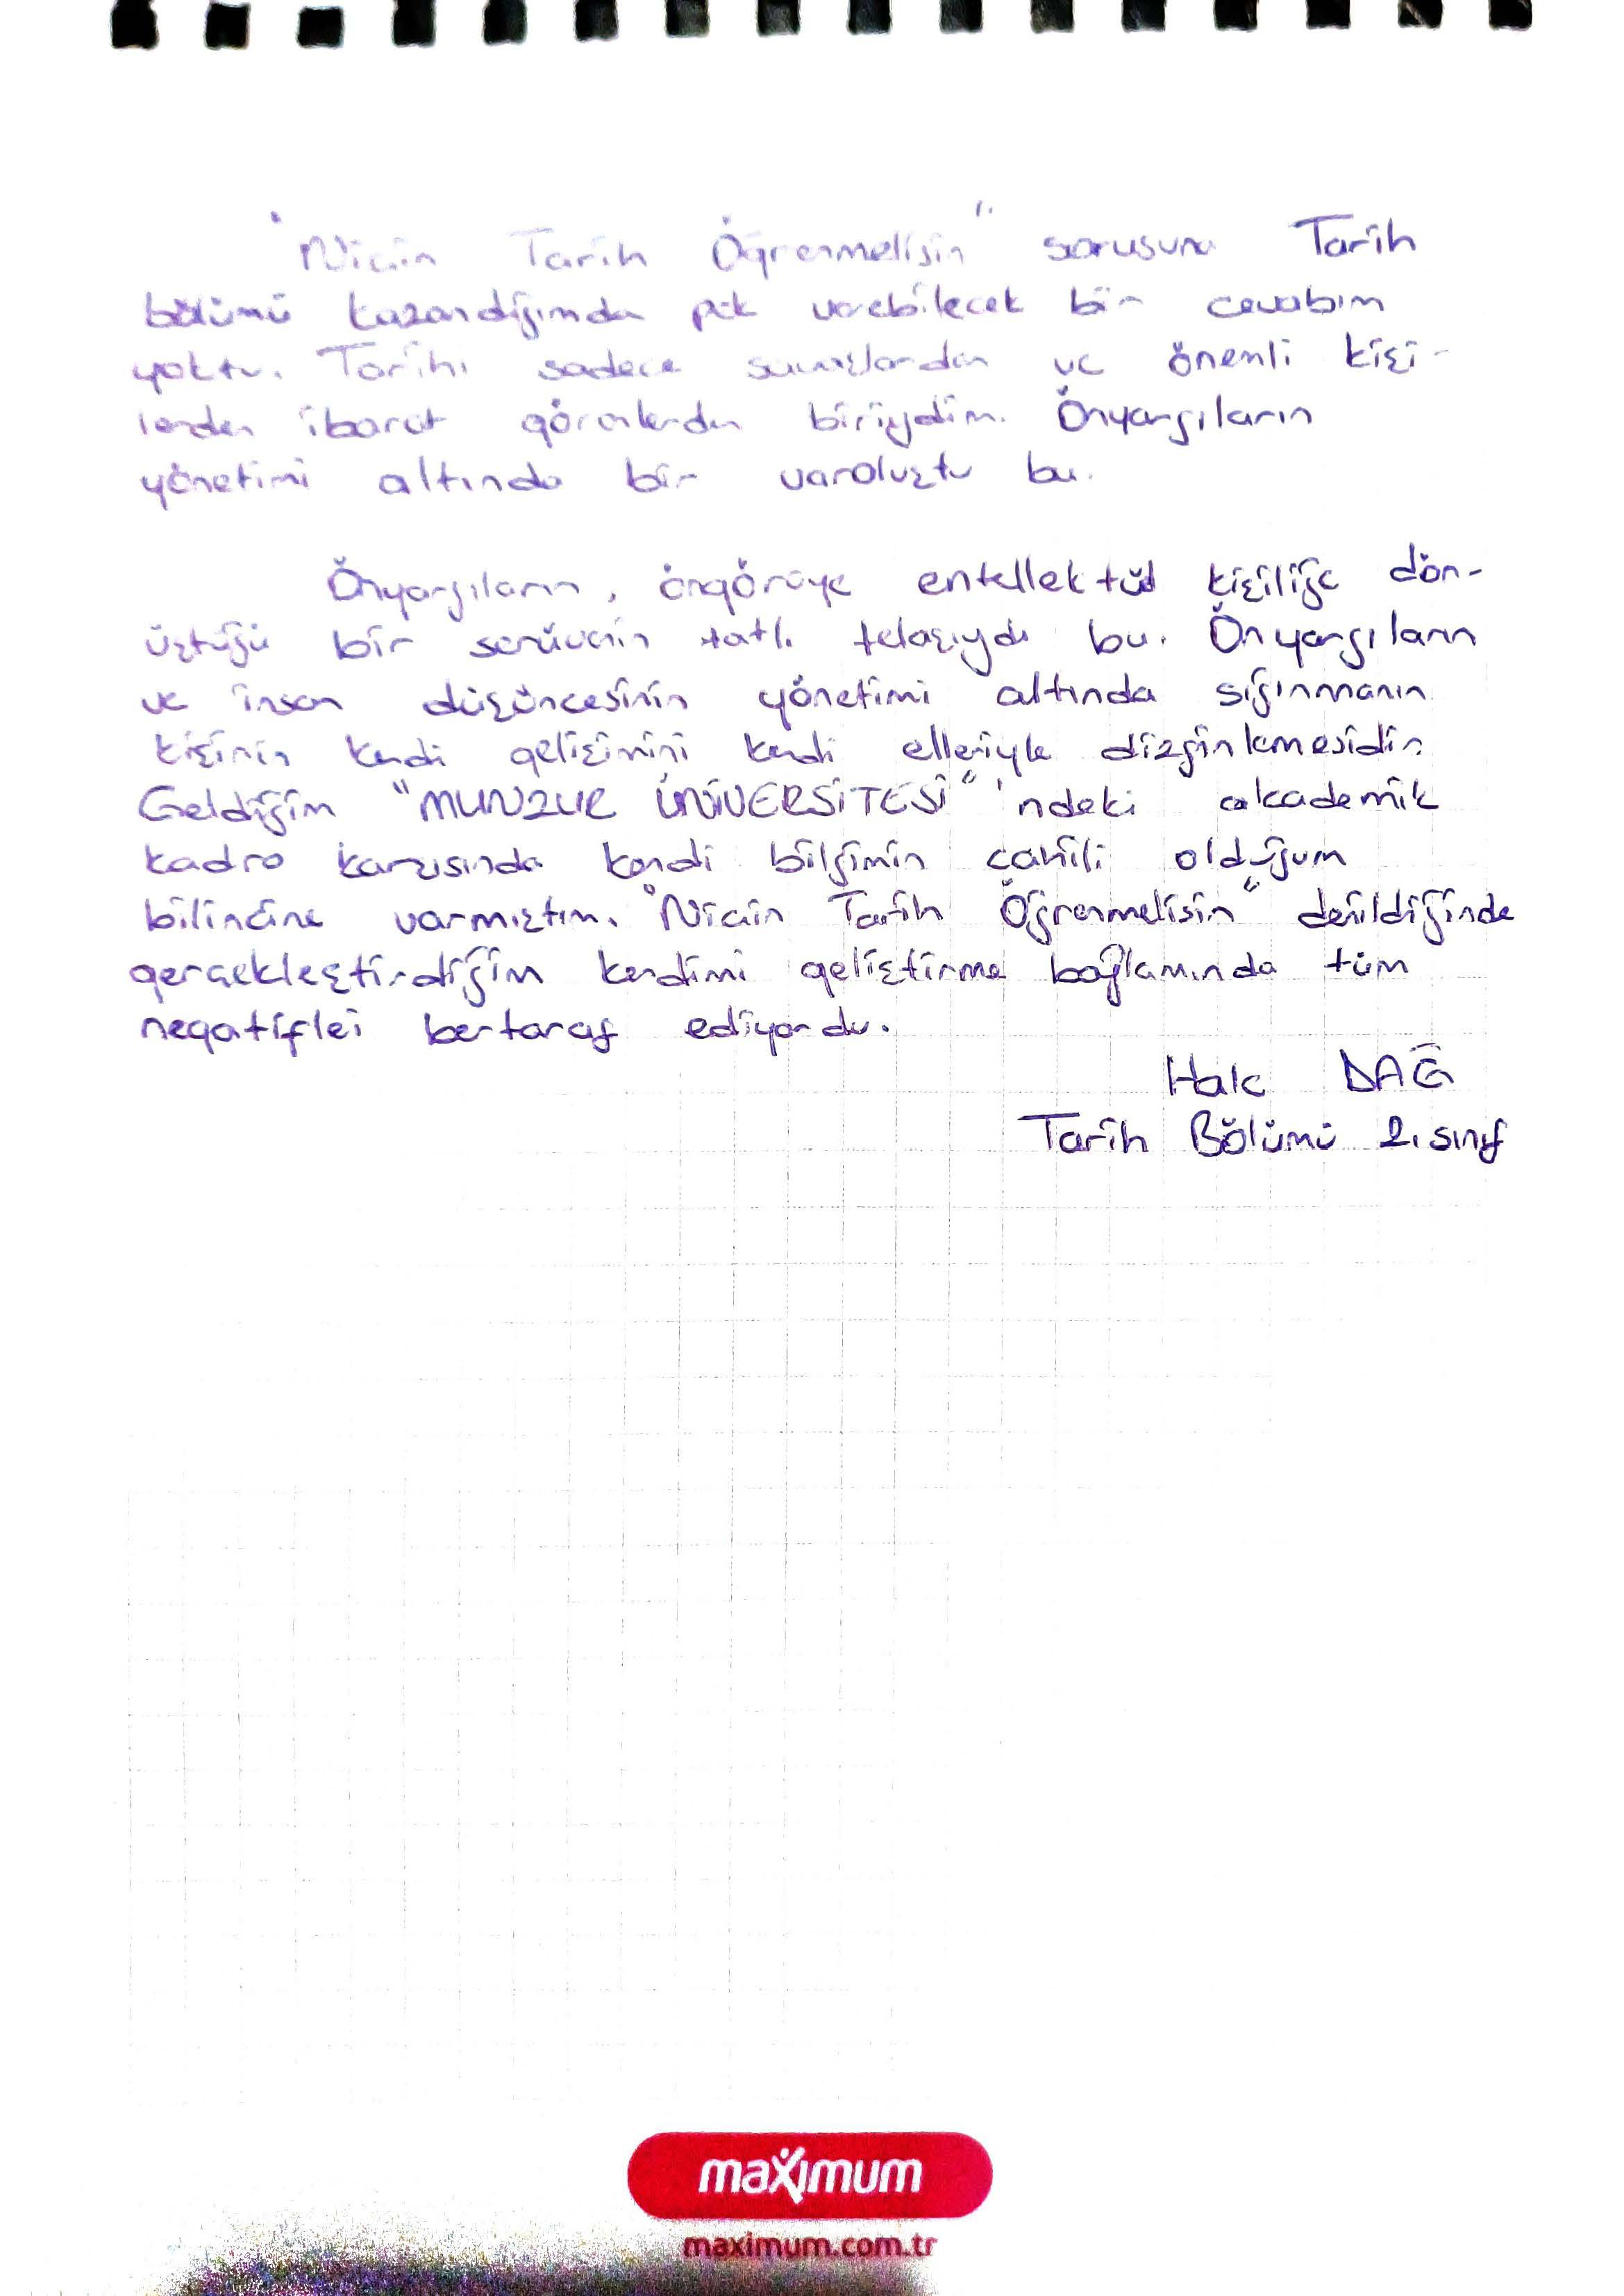 "Niçin Tarih Öğrenmelisin" sorusuna Tarih
bölümü kazandığımda pek verebilecek bir cevabım
yoktu. Tarihi sadece savaşlardan ve önemli kişi-
lerden ibaret görenlerden biriydim. Önyargıların
yönetimi altında bir varoluştu bu.
Önyargıların, öngörüye entellektüel kişiliğe dön-
üştüğü bir serüvenin tatlı telaşıydı bu. Önyargıların
ve insan düşüncesinin yönetimi altında sığınmanın
kişinin kendi gelişimini kendi elleriyle dizginlemesidir.
Geldiğim "MUNZUR ÜNİVERSİTESİ"'ndeki akademik
kadro karşısında kendi bilgimin cahili olduğum
bilincine varmıştım. "Niçin Tarih Öğrenmelisin" denildiğinde
gerçekleştirdiğim kendimi geliştirme bağlamında tüm
negatifleri bertaraf ediyordu.
DAĞ
Tarih Bölümü 2. sınıf
maximum
maximum.com.tr